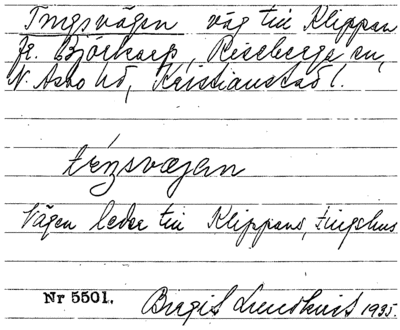 Tingsvägen väg till Klippan
fr. Björkarp, Riseberga sn,
N. Åsbo hd, Kristianstad l.
téŋsvæjen
Vägen leder till Klippans tingshus
Nr 5501. Birgit Lundkvist 1935.